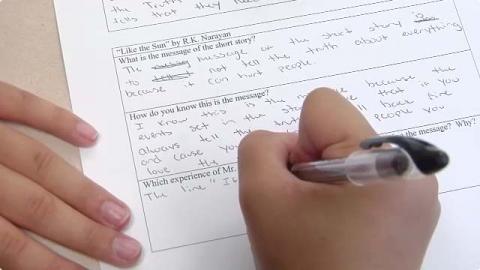 the Truth
tells that they
"Like the Sun" by R.K. Narayan
What is the message of the short story?
The message of the short story is
to not tell the truth about everything
because it can hurt people.
How do you know this is the message?
I know this is the message because the
events set in the that you
always tell the have fire
and cause you people you
love the
the message? Why?
Which experience of Mr.
The line "I